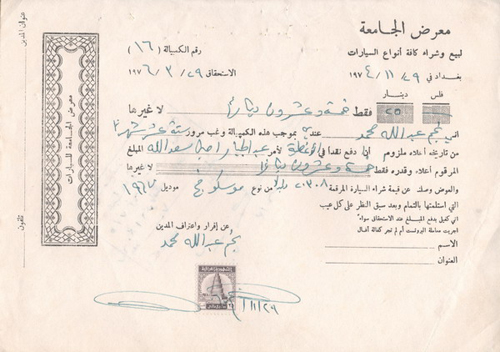 معرض الجامعة
لبيع وشراء كافة أنواع السيارات
رقم الكمبيالة ( ١٦ )
بغداد في ٢٩ / ١١ / ١٩٧٤
الاستحقاق ٢٩ / ٣ / ١٩٧٦
فلس دينار
٢٥ فقط خمسة وعشرون دينارا لا غيرها
نجم عبدالله محمد بموجب هذه الكمبيالة وغب مرور ستة عشر شهرا
من تاريخه أعلاه ملزوم ان ادفع نقدا في لأمر عبد الجبار سعدالله المبلغ
المرقوم أعلاه وقدره فقط خمسة وعشرون دينارا لا غيرها
والعوض وصلا عن قيمة شراء السيارة المرقمة من نوع موسكوفج موديل
التي استلمتها بالتمام وبعد سبق النظر على كل عيب
اني كفيل بدفع المبلغ عند الاستحقاق سواء
اجريت معاملة البروتستو أم لم تجر كفالة
عن إقرار واعتراف المدين
نجم عبدالله محمد
الاسم
العنوان
معرض الجامعة للسيارات
عنوان المدين
تلفون